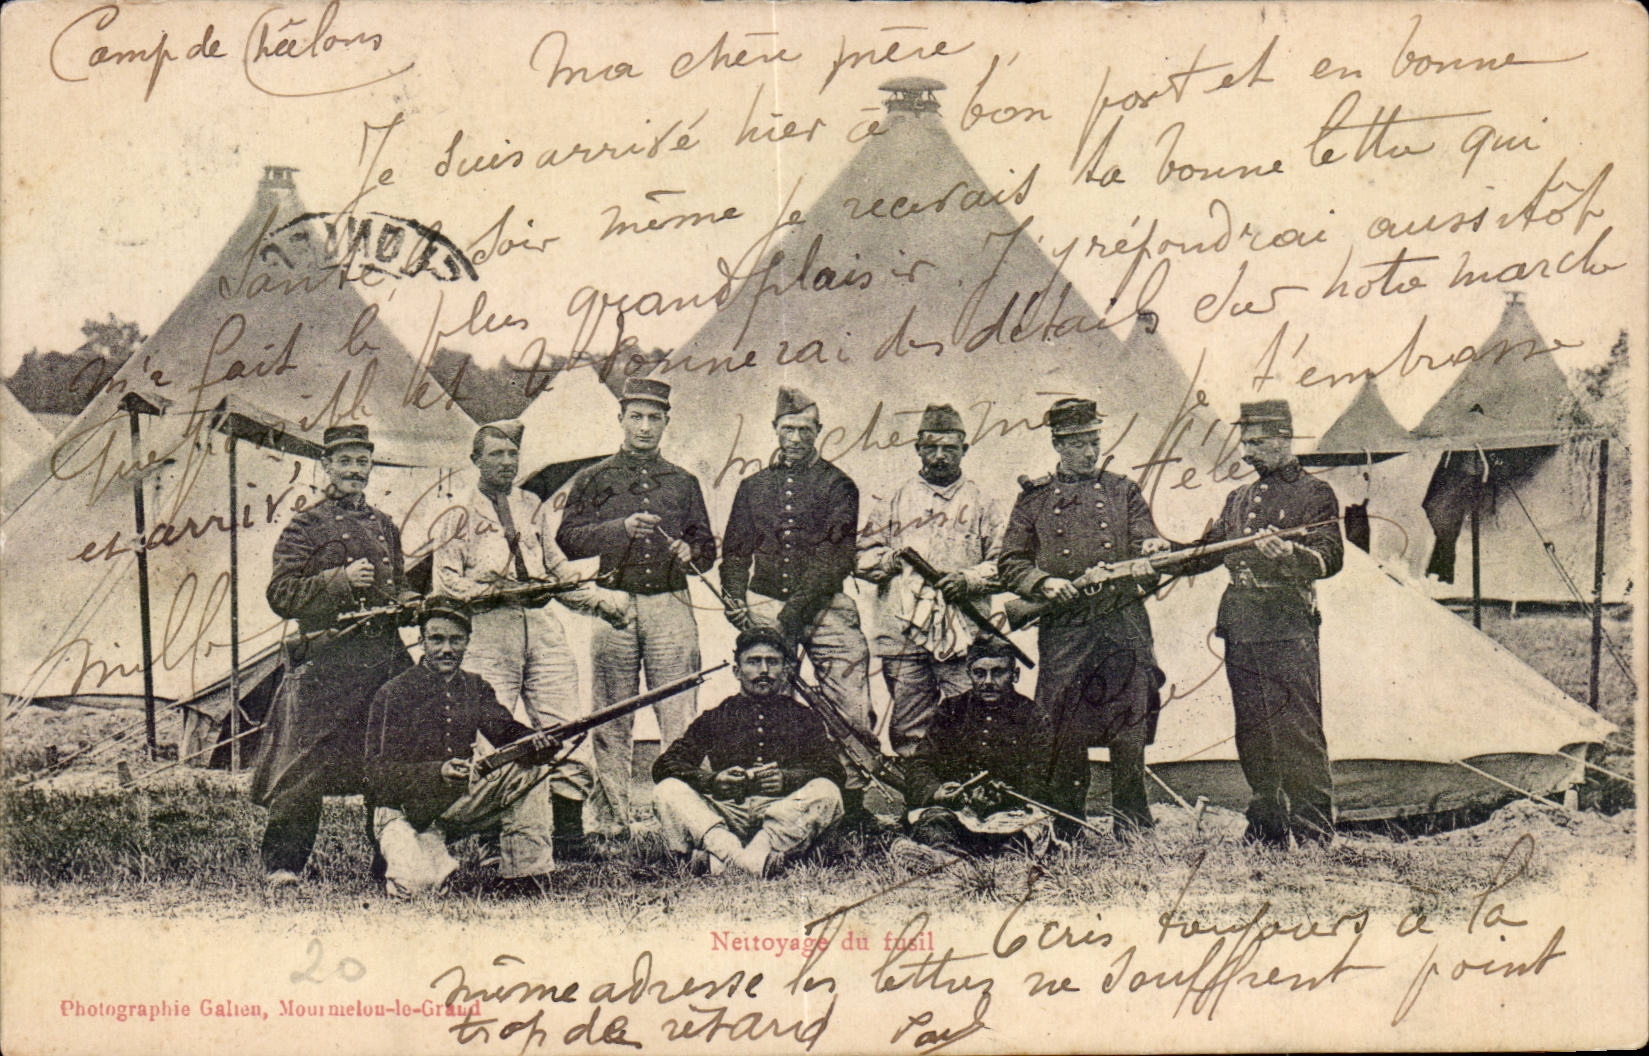 Camp de Châlons
Ma chère mère,
Je suis arrivé hier à bon port et en bonne
santé, le soir même je recevais ta bonne lettre qui
m'a fait le plus grand plaisir. J'y répondrai aussitôt
que possible et te donnerai des détails sur notre marche
et arrivée ma chère mère, je t'embrasse
mille
Paul
Nettoyage du fusil
Ecris toujours à la
même adresse les lettres ne souffrent point
trop de rétard Paul
20
Photographie Galien, Mourmelon-le-Grand